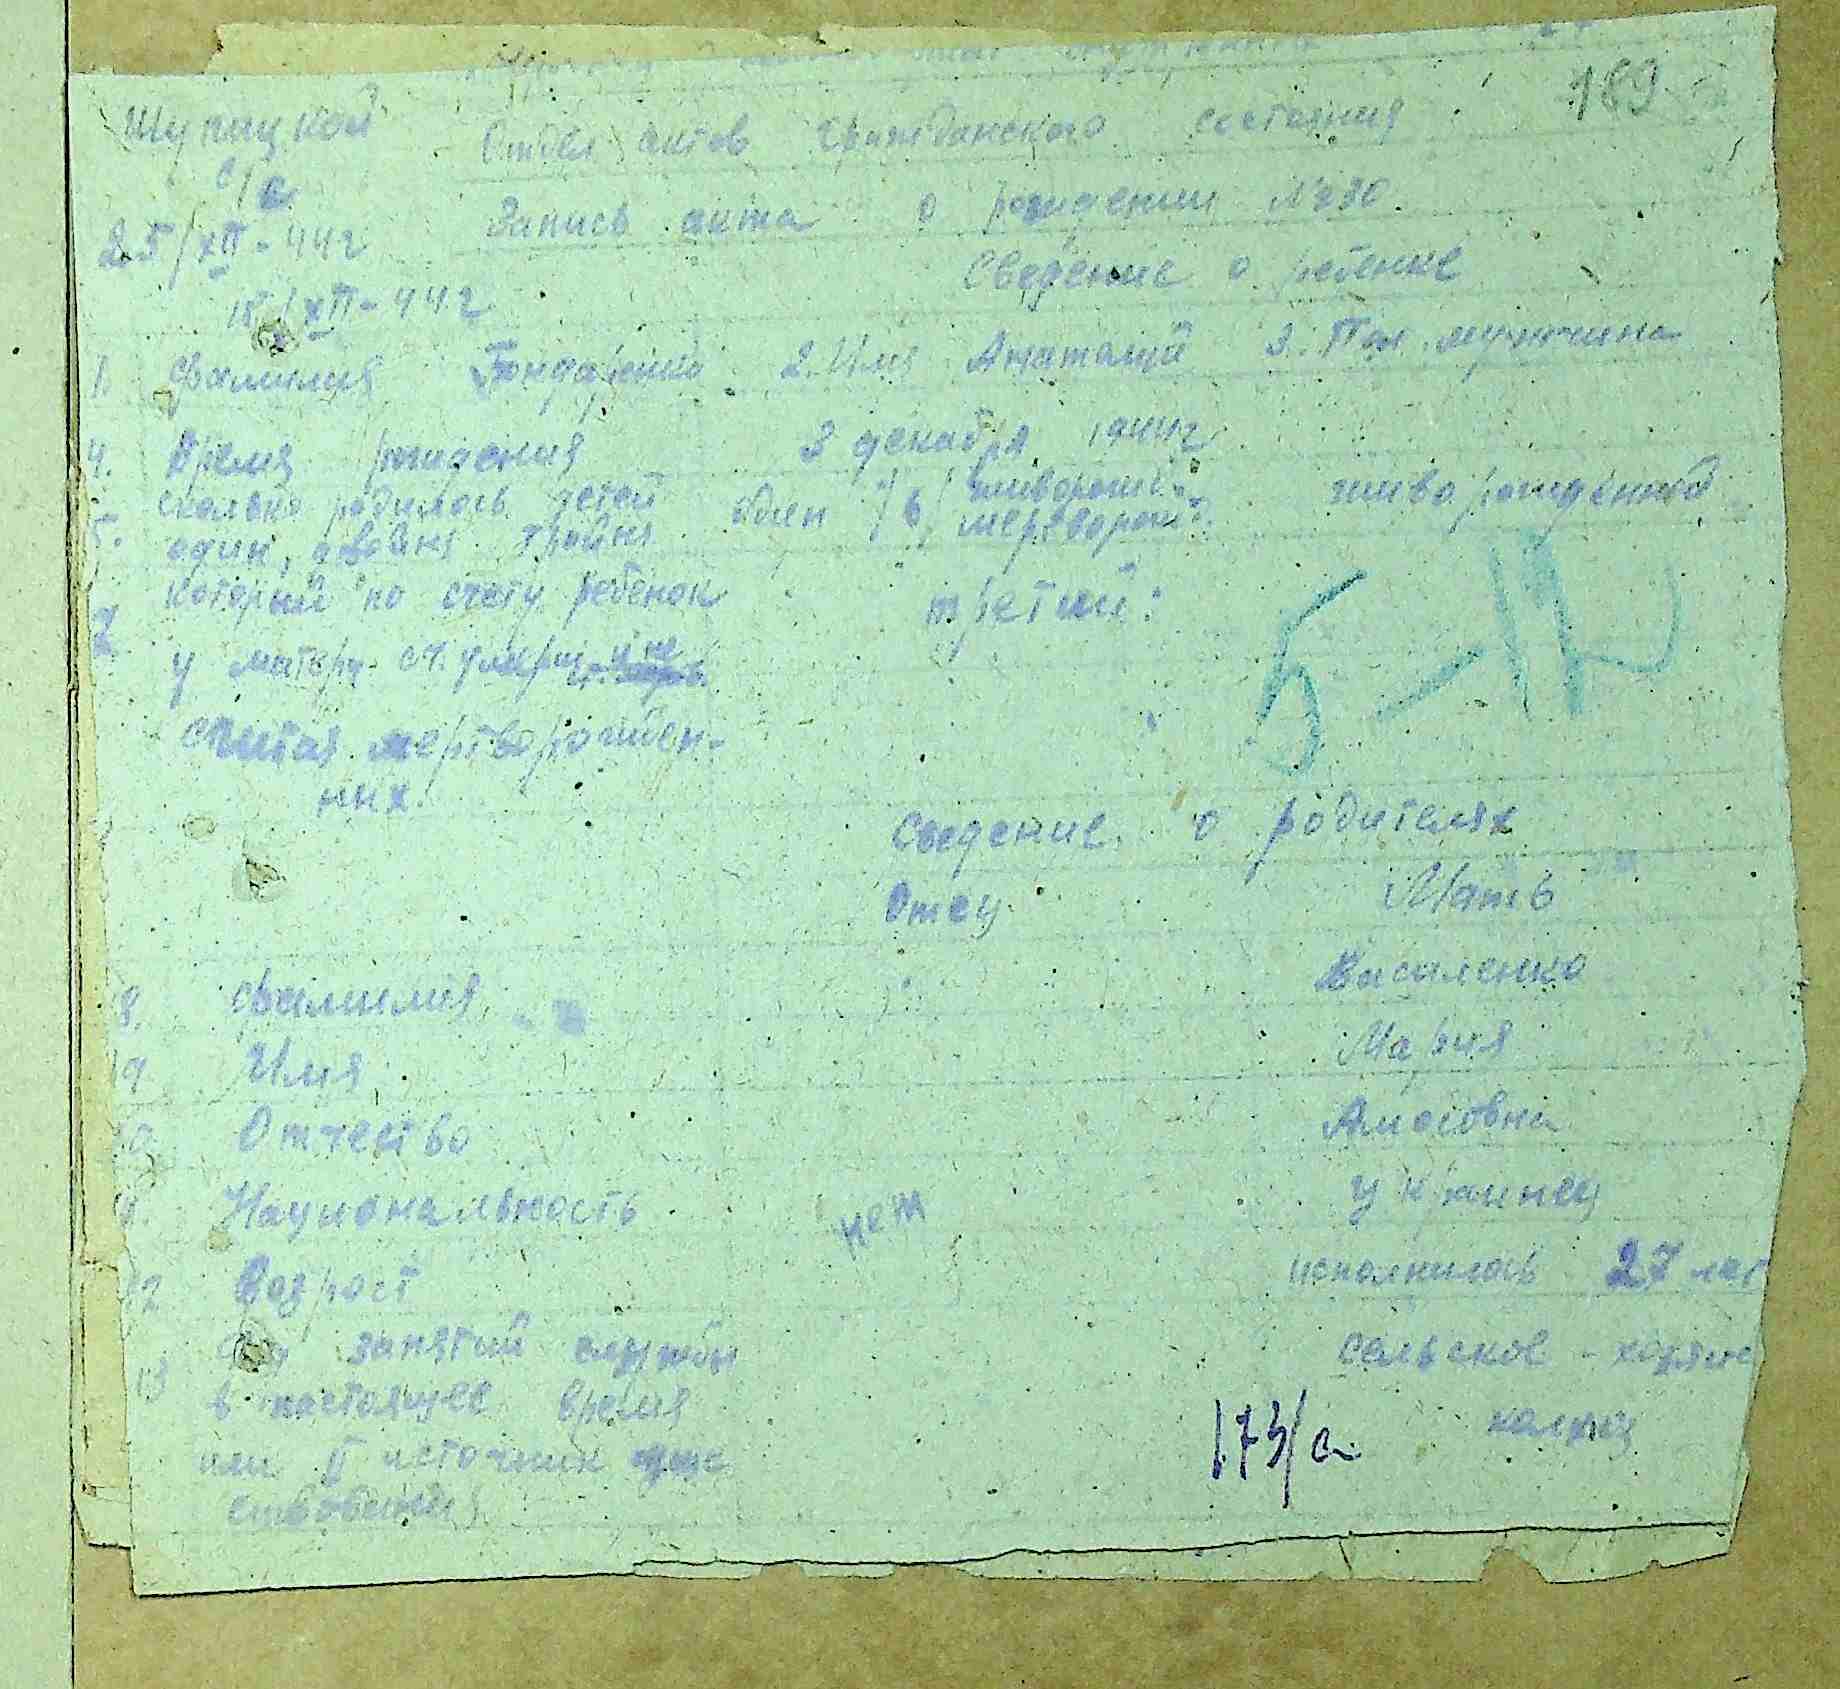 189
Отдел актов гражданского состояния
с/с
Запись акта о рождении №230.
25/XII-44г
Сведение о ребенке
15/XII-44г
1. Фамилия Бондаренко 2. Имя Анатолий 3. Пол мужчина
4. Время рождения 3 декабря 1944г
5. сколько родилось детей один /6/ живорож. живорожденной
один, двойня тройня мертворож.
7 который по счету ребенок третий:
у матери сч. умерш. и не
считая мертворожден-
них.
5-12
Сведение о родителях
Отец Мать
8. Фамилия Василенко
9. Имя Мария
10. Отчество Амосовна
11. Национальность нет украинец
12 Возраст исполнилось 27 лет
13 занятий службы сельское-хозяйс
в настоящее время колхоз
или источник суще
ствования
173/а